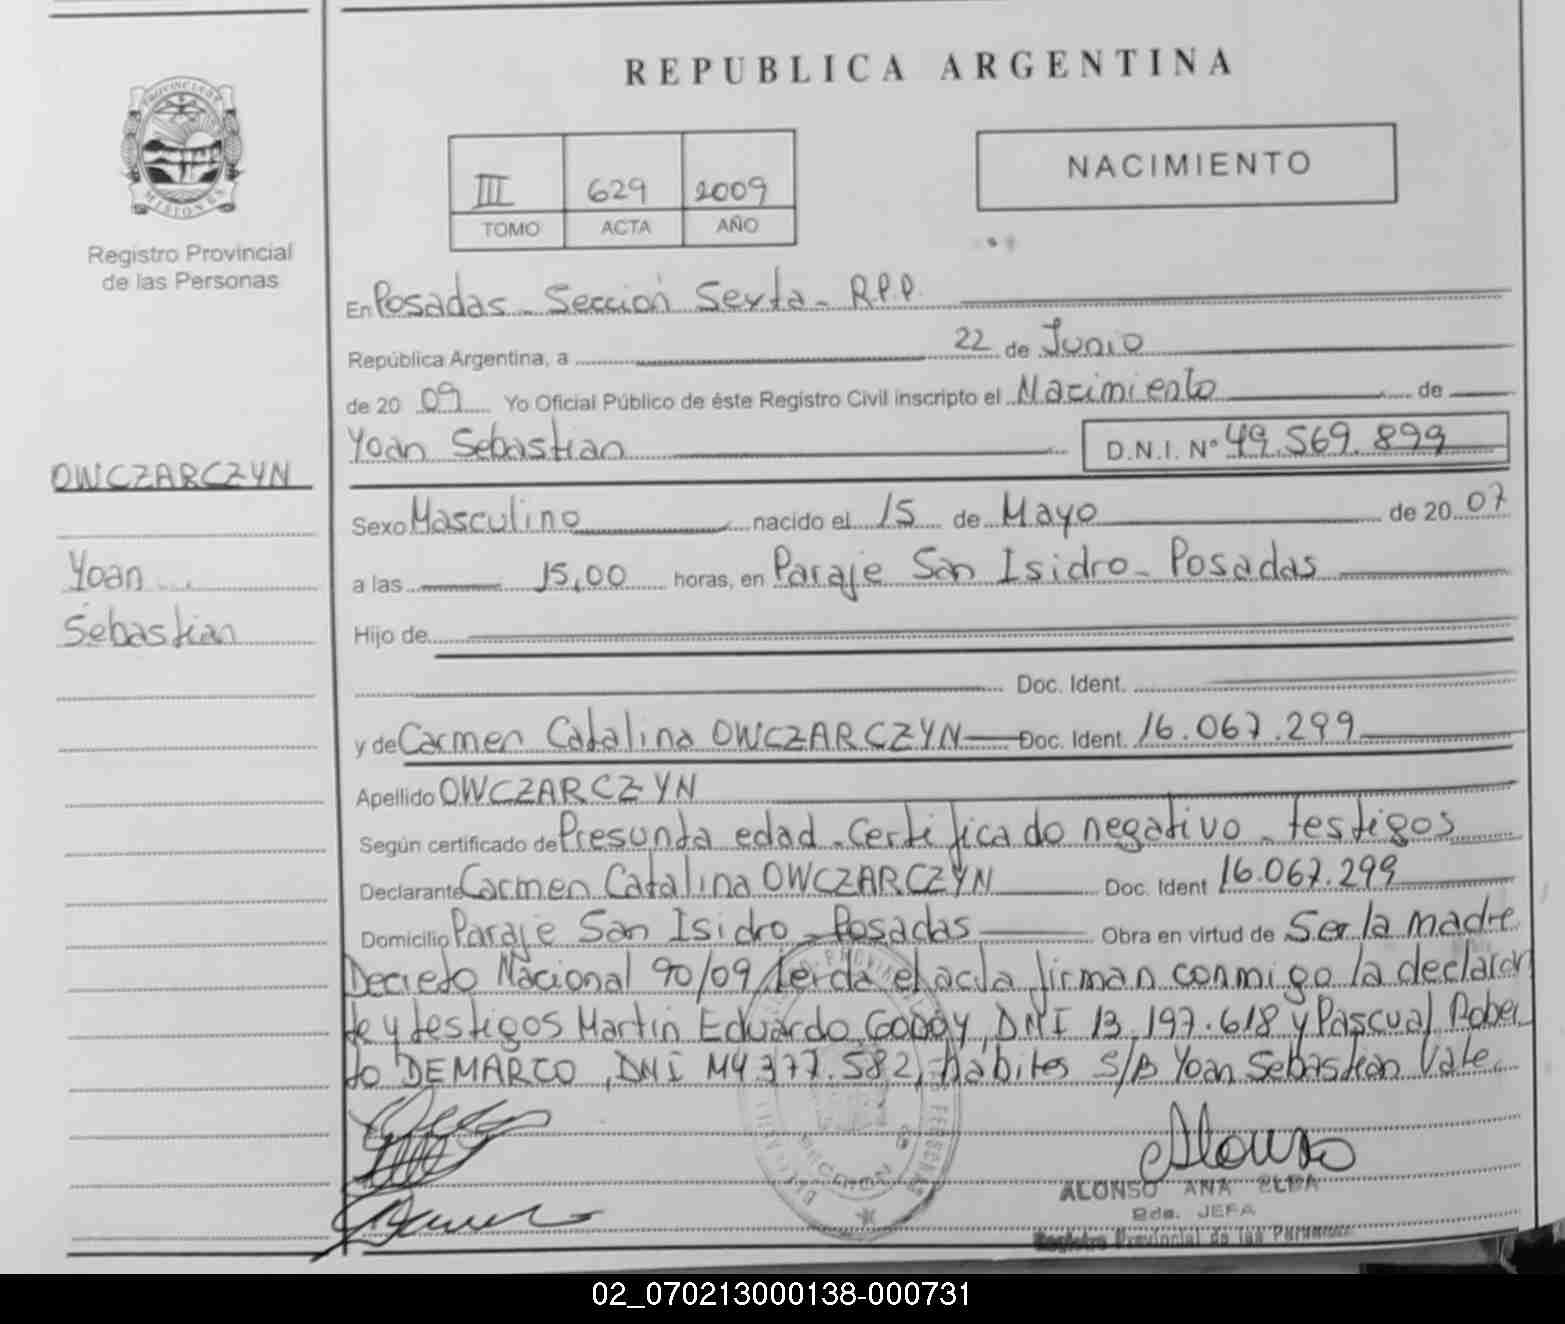 REPUBLICA ARGENTINA
PROVINCIA DE
MISIONES
Registro Provincial
de las Personas
III 629 2009
TOMO ACTA AÑO
NACIMIENTO
En Posadas - Sección Sexta - R.P.P.
República Argentina, a 22 de Junio
de 20 09 Yo Oficial Público de éste Registro Civil inscripto el Nacimiento de
Yoan Sebastian D.N.I. Nº 49.569.899
OWCZARCZYN
Yoan
Sebastian
Sexo Masculino nacido el 15 de Mayo de 20 07
a las 15,00 horas, en Paraje San Isidro - Posadas
Hijo de
Doc. Ident.
y de Carmen Catalina OWCZARCZYN Doc. Ident. 16.067.299
Apellido OWCZARCZYN
Según certificado de Presunta edad - Certificado negativo - testigos
Declarante Carmen Catalina OWCZARCZYN Doc. Ident 16.067.299
Domicilio Paraje San Isidro - Posadas Obra en virtud de Ser la madre
Decreto Nacional 90/09, leída el acta firman conmigo la declaran
te y testigos Martin Eduardo GODOY, DNI 13.197.618 y Pascual Rober
to DEMARCO, DNI M4.377.582, hábiles S/B Yoan Sebastian Vale.
Alonso
ALONSO ANA ELBA
Bda. JEFA
Registro Provincial de las Personas
02_070213000138-000731